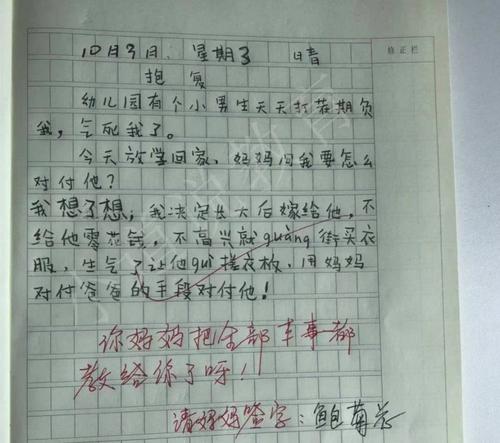 修正栏
10月9日 星期3 晴
抱复
幼儿园有个小男生天天打荘期负
我，气死我了。
今天放学回家，妈妈问我要怎么
对付他？
我想了想，我决定长大后嫁给他，不
给他零花钱，不高兴就guàng街买衣
服，生气了让他guì搓衣板，用妈妈
对付爸爸的手段对付他！
你妈妈把全部本事都
教给你了呀！
请妈妈签字：鲍菊芯